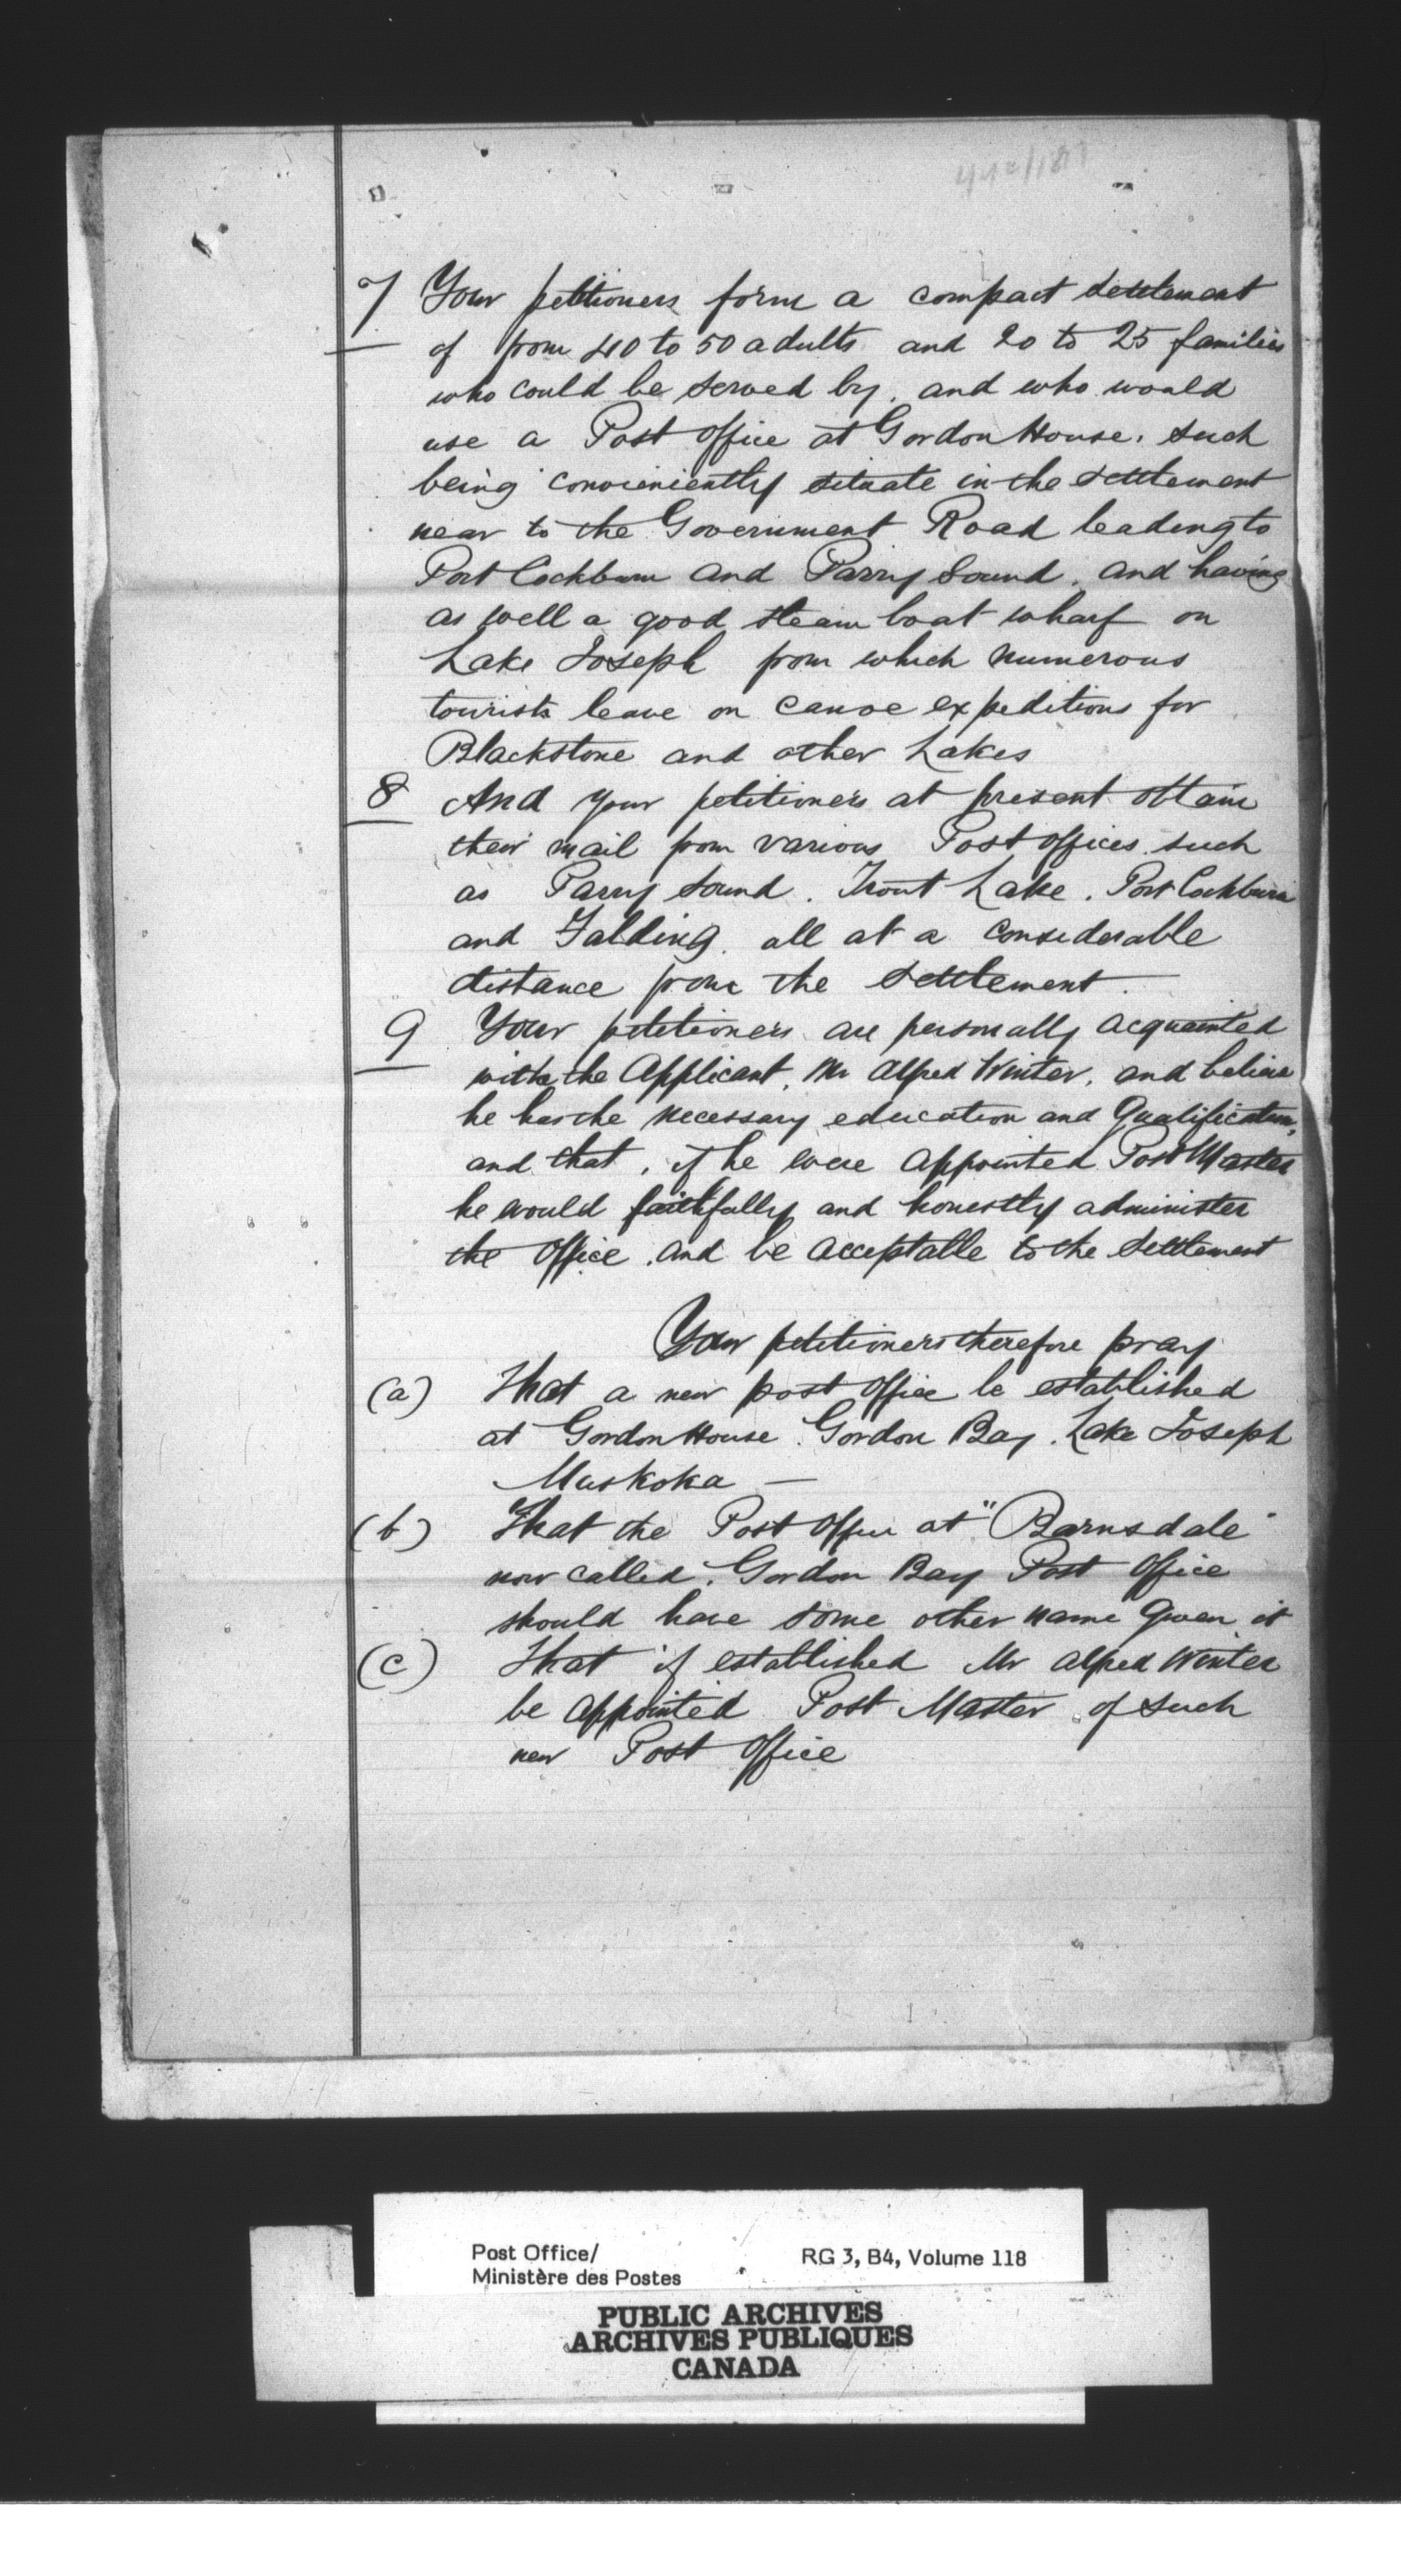 7 Your petitioners form a compact settlement
of from 40 to 50 adults and 20 to 25 families
who could be served by, and who would
use a Post Office at Gordon House, such
being conveniently situate in the settlement
near to the Government Road leading to
Port Cockburn and Parry Sound, and having
as well a good steam boat wharf on
Lake Joseph from which numerous
tourists leave on canoe expeditions for
Blackstone and other Lakes
8 And your petitioners at present obtain
their mail from various Post offices such
as Parry Sound. Trout Lake. Port Cockburn
and Falding. all at a considerable
distance from the settlement.
9 Your petitioners are personally acquainted
with the Applicant, Mr Alfred Winter, and believe
he has the necessary education and Qualifications,
and that, if he were appointed Post Master
he would faithfully and honestly administer
the Office, and be acceptable to the settlement
Your petitioners therefore pray
(a) That a new post office be established
at Gordon House. Gordon Bay. Lake Joseph
Muskoka —
(b) That the Post Office at "Barnsdale"
now called. Gordon Bay Post Office
should have some other name given it
(c) That if established Mr Alfred Winter
be appointed Post Master of such
new Post Office
Post Office/ RG 3, B4, Volume 118
Ministère des Postes
PUBLIC ARCHIVES
ARCHIVES PUBLIQUES
CANADA